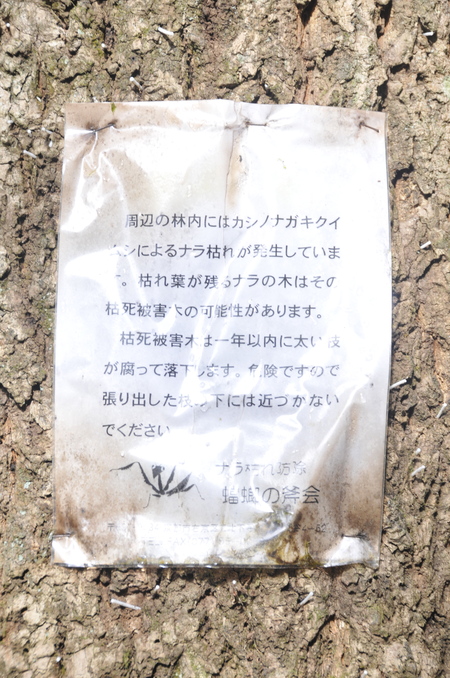 周辺の林内にはカシノナガキクイ
ムシによるナラ枯れが発生していま
す。枯れ葉が残るナラの木はその
枯死被害木の可能性があります。
枯死被害木は一年以内に太い枝
が腐って落下します。危険ですので
張り出した枝の下には近づかない
でください
ナラ枯れ防除
蟷螂の斧会